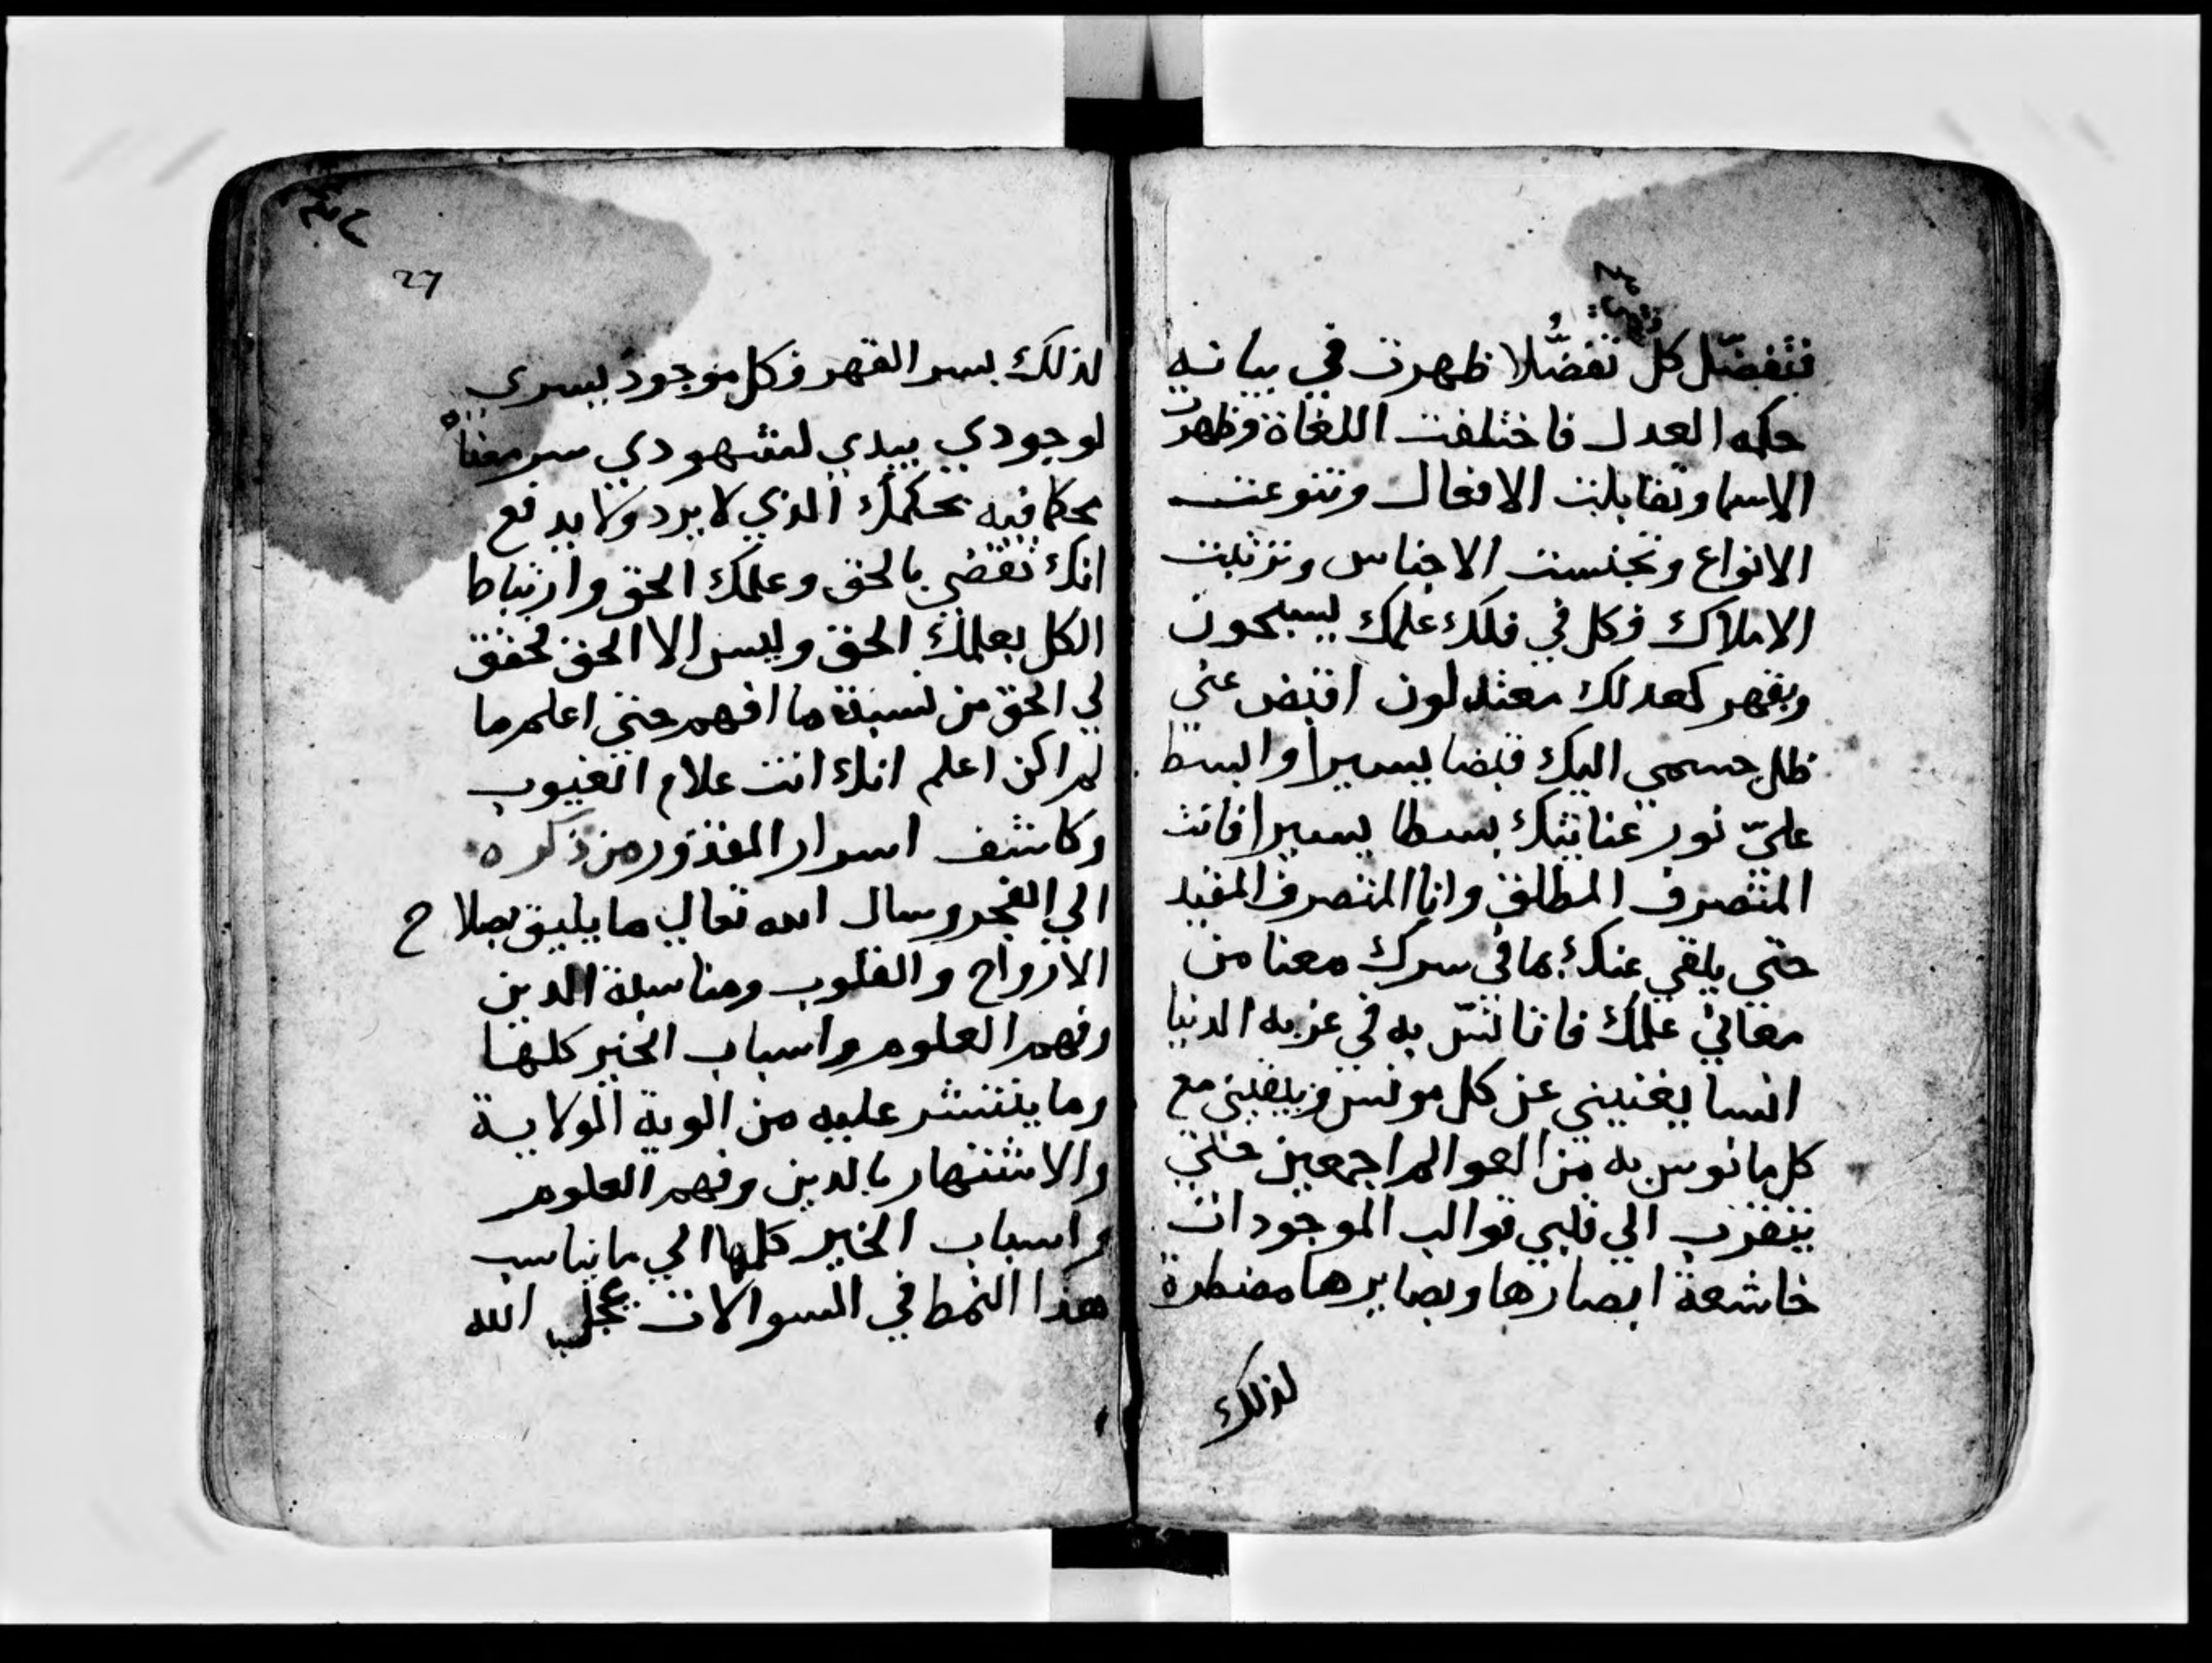 فتفضّل كل تفضّلا ظهرت في بيانه
حكه العدل فاختلفت اللغاة وظهرت
الاسما وتقابلت الافعال وتنوعت
الانواع وتجنست الاجناس وترتبت
الاملاك وكل في فلك علمك يسبحون
وبقهر كعدلك معتدلون اقبض عني
ظل جسمي اليك قبضا يسيرا وابسط
عليّ نور عنايتك بسطا يسيرا فانت
المتصرف المطلق وانا المتصرف المقيد
حتي يلقي عنك بما في سرك معنا من
معاني علمك فاتانسّ به في غربه الدنيا
انسا يغنيني عن كل مونس ويبقيني مع
كل مانوس به من العوالم اجمعين حتي
يتقرب الي قلبي قوالب الموجودات
خاشعة ابصارها وبصايرها مضطرة
لذلك
27
لذلك بسر القهر وكل موجود يسري
لوجودي يبدي لشهودي سر معناه
محكما فيه بحكمك الذي لا يرد ولا يدفع
انك تقضي بالحق وعلمك الحق وارتباط
الكل بعلمك الحق وليس الا الحق فحقق
لي الحق من نسبة ما افهم حتي اعلم ما
لم اكن اعلم انك انت علام الغيوب
وكاشف اسرار المقدور من ذكره
الي الفجر وسال الله تعالي ما يليق بصلاح
الارواح والقلوب ومناسبة الدين
وفهم العلوم واسباب الخير كلها
وما ينتشر عليه من الوية الولاية
والاشتهار بالدين وفهم العلوم
واسباب الخير كلها الي ما يناسب
هذا النمط في السوالات عجل الله